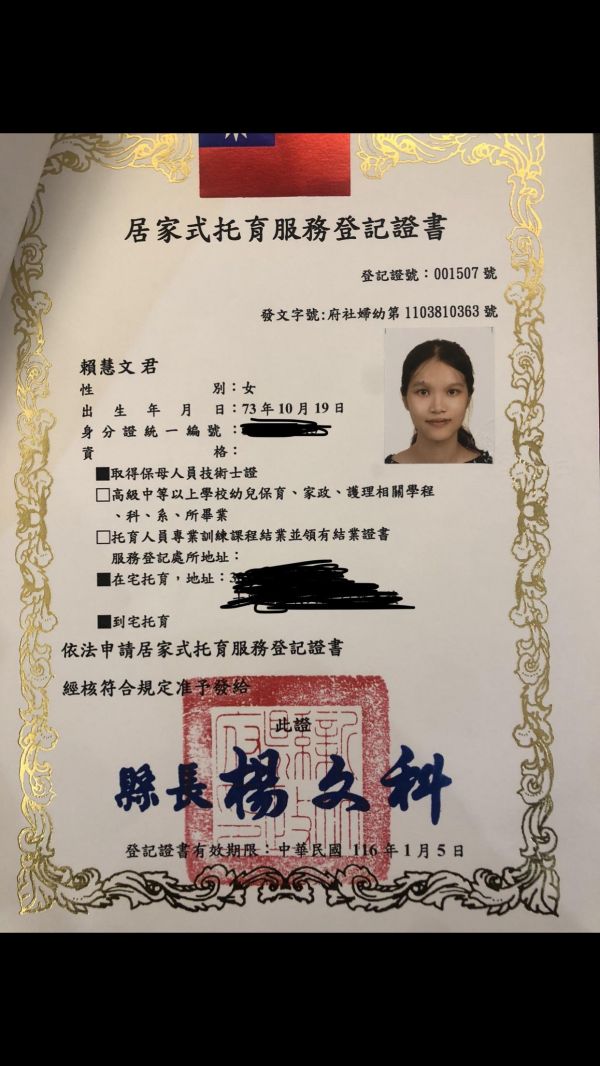 居家式托育服務登記證書
登記證號：001507 號
發文字號:府社婦幼第 1103810363 號
賴慧文 君
性別：女
出生年月日：73 年 10 月 19 日
身分證統一編號：
資格：
■取得保母人員技術士證
□高級中等以上學校幼兒保育、家政、護理相關學程
、科、系、所畢業
□托育人員專業訓練課程結業並領有結業證書
服務登記處所地址：
■在宅托育，地址：
■到宅托育
依法申請居家式托育服務登記證書
經核符合規定准予發給
此證
縣長楊文科
登記證書有效期限：中華民國 116 年 1 月 5 日